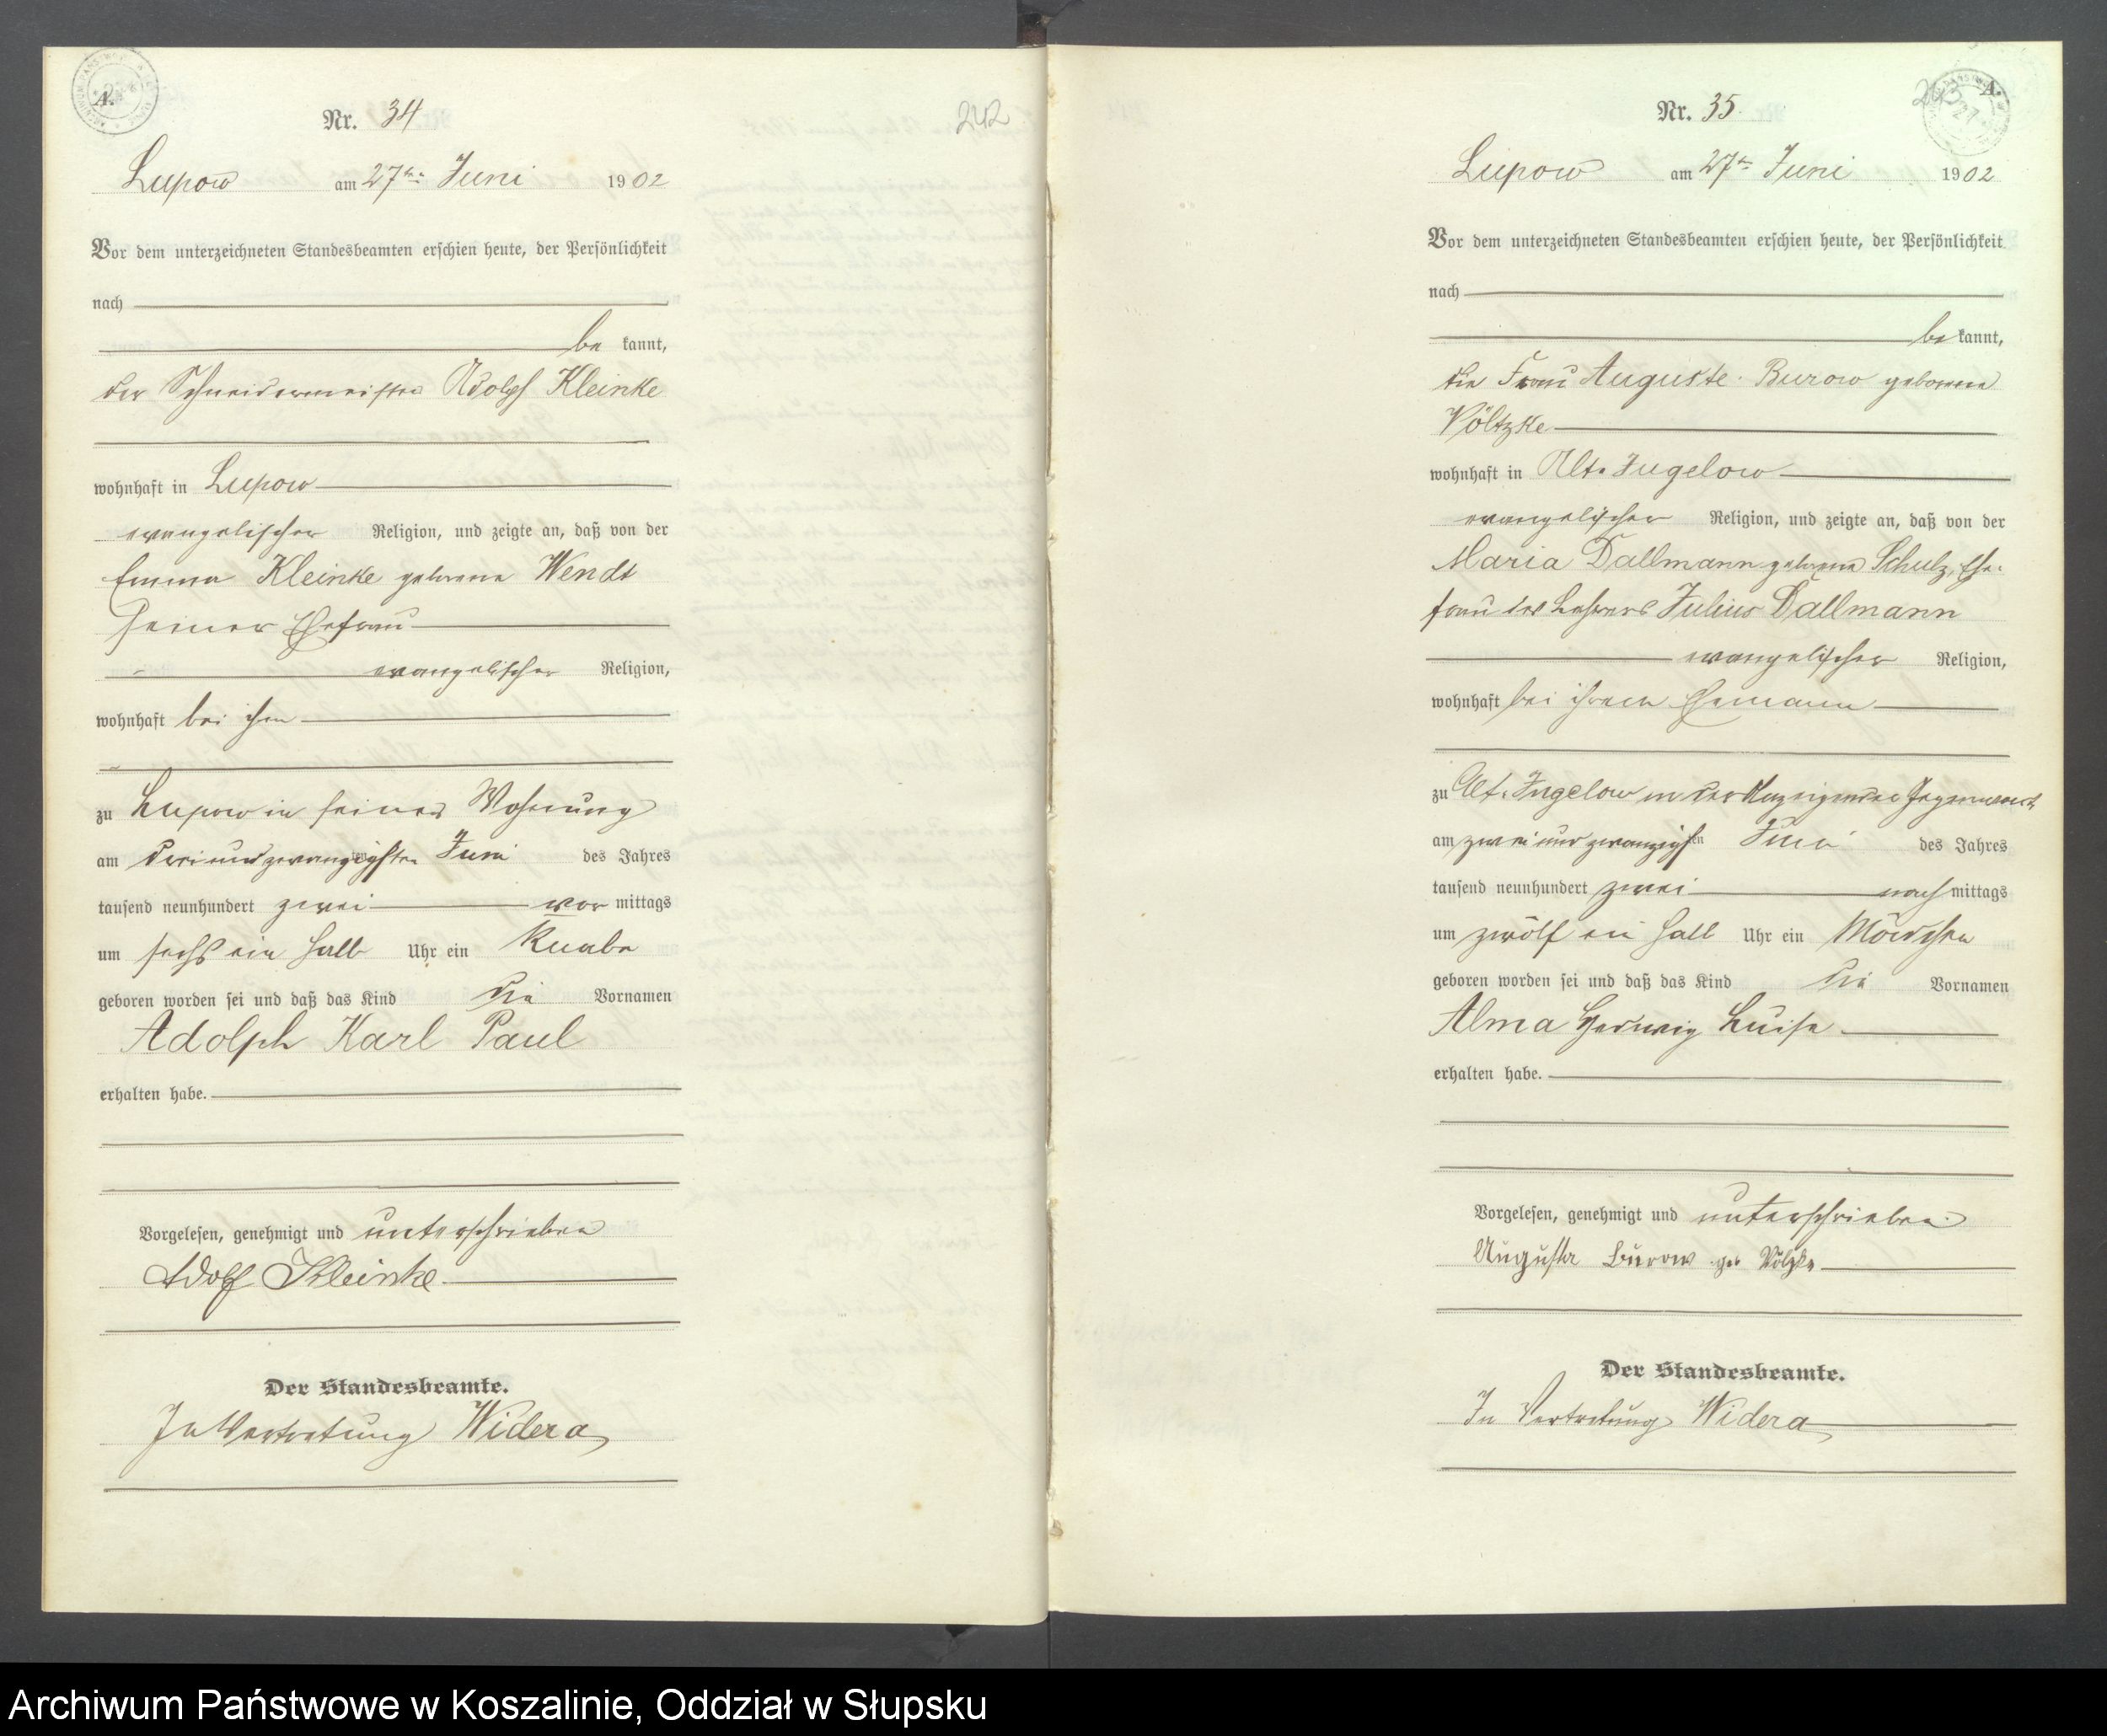 A.
Nr. 34
242
Lupow am 27ten Juni 1902
Vor dem unterzeichneten Standesbeamten erschien heute, der Persönlichkeit
nach
be kannt,
der Schneidermeister Adolph Kleinke
wohnhaft in Lupow
evangelischer Religion, und zeigte an, daß von der
Emma Kleinke geborene Wendt
seiner Ehefrau
evangelischer Religion,
wohnhaft bei ihm
zu Lupow in seiner Wohnung
am dreiundzwanzigsten Juni des Jahres
tausend neunhundert zwei vor mittags
um sechs ein halb Uhr ein Knabe
geboren worden sei und daß das Kind die Vornamen
Adolph Karl Paul
erhalten habe.
Vorgelesen, genehmigt und unterschrieben
Adolf Kleinke
Der Standesbeamte.
In Vertretung Widera
A.
Nr. 35.
Lupow am 27ten Juni 1902
Vor dem unterzeichneten Standesbeamten erschien heute, der Persönlichkeit
nach
be kannt,
die Frau Auguste Burow geborene
Völtzke
wohnhaft in Alt-Jugelow
evangelischer Religion, und zeigte an, daß von der
Maria Dallmann geborene Schulz, Ehe-
frau des Lehrers Julius Dallmann
evangelischer Religion,
wohnhaft bei ihrem Ehemann
zu Alt-Jugelow in der Anzeigenden Gegenwart
am zweiundzwanzigsten Juni des Jahres
tausend neunhundert zwei nach mittags
um zwölf ein halb Uhr ein Mädchen
geboren worden sei und daß das Kind die Vornamen
Alma Hedwig Luise
erhalten habe.
Vorgelesen, genehmigt und unterschrieben
Auguste Burow geb Völzke
Der Standesbeamte.
In Vertretung Widera
Archiwum Państwowe w Koszalinie, Oddział w Słupsku